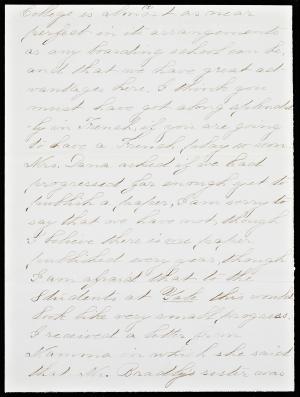 College is almost as near
perfect in its arrangements
as any boarding school can be,
and that we have great ad
vantages here. I think you
must have got along splendid
ly in French, if you are going
to have a French play so soon
Mrs. Dana asked if we had
progressed far enough yet to
publish a paper, I am sorry to
say that we have not, though
I believe there is one paper
published every year, though
I am afraid that to the
Students at Yale this would
look like very small progress.
I received a letter from
Mamma in which she said
that Mr. Bradley's sister was